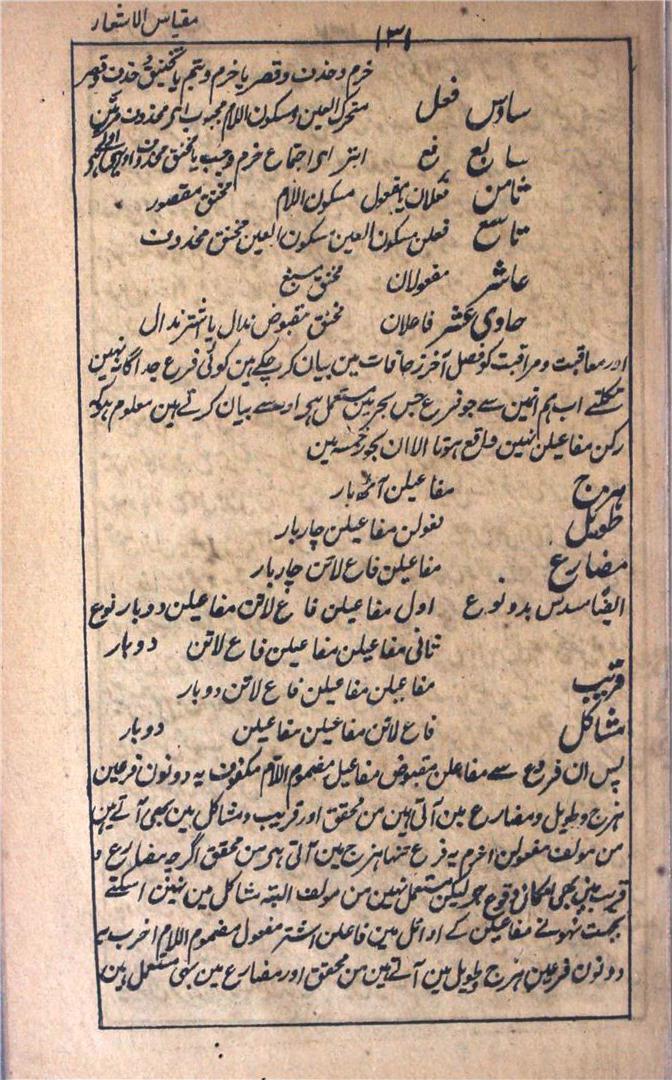 مقیاس الاشعار
۱۳۱
خرم و حذف و قصر یا خرم و تیم یا تخنیق و حذف و قصر
سادس فعل متحرک العین و سکون اللام مجبوب اہتر محذوف
سابع فع ابتر اے اجتماع خرم و جب یا مخنق محذوف
ثامن فعلان یا مفعول سکون اللام مخنق مقصور
تاسع فعلن سکون العین سکون العین مخنق محذوف
عاشر مفعولان مخنق مسبغ
حادی عشر فاعلان مخنق مقبوض ندال یا اشتر ندال
اور معاقبت و مراقبت کو فصل آخر زحافات مین بیان کر چکے ہین کوئی فرع جداگانہ نہین
نکلتے اب ہم انمین سے جو فرع جس بحر مین مستعمل ہے اوسے بیان کرتے ہین معلوم ہو کہ
رکن مفاعیلن نہین واقع ہوتا الا ان بحور خمسہ مین
ہزج مفاعیلن آٹھ بار
طویل فعولن مفاعیلن چار بار
مضارع مفاعیلن فاع لاتن چار بار
ایضًا مسدس بدو نوع اول مفاعیلن فاع لاتن مفاعیلن دو بار نوع
ثانی مفاعیلن مفاعیلن فاع لاتن دو بار
قریب مفاعیلن مفاعیلن فاع لاتن دو بار
مشاکل فاع لاتن مفاعیلن مفاعیلن دو بار
پس ان فروع سے مفاعلن مقبوض مفاعیل مضموم اللام مکفوف یہ دونون فرعین
ہزج و طویل و مضارع مین آتی ہین من محقق اور قریب و مشاکل مین بھی آتے ہین
من مولف مفعولن اخرم یہ فرع تنہا ہزج مین آتی ہے من محقق اگرچہ مضارع و
قریب مین بھی امکان وقوع ہے لیکن مستعمل نہین من مولف البتہ مشاکل مین نہین آسکتے
بجہت نہونے مفاعیلن کے اوائل مین فاعلن اشتر مفعول مضموم اللام اخرب یہ
دونون فرعین ہزج و طویل مین آتے ہین من محقق اور مضارع مین بھی مستعمل ہین